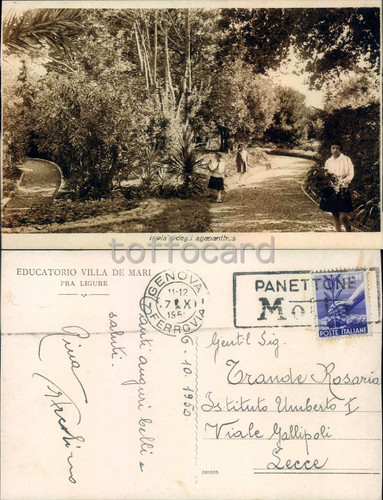 toffocard
degli agapanthus
EDUCATORIO VILLA DE MARI
PRA LIGURE
GENOVA
11-12
7 X
FERROVIA
PANETTONE
Mo
POSTE ITALIANE
6. 10. 1950
Tanti auguri belli e
saluti.
Rina
Gentil Sig.
Grande Rosaria
Istituto Umberto I
Viale Gallipoli
Lecce